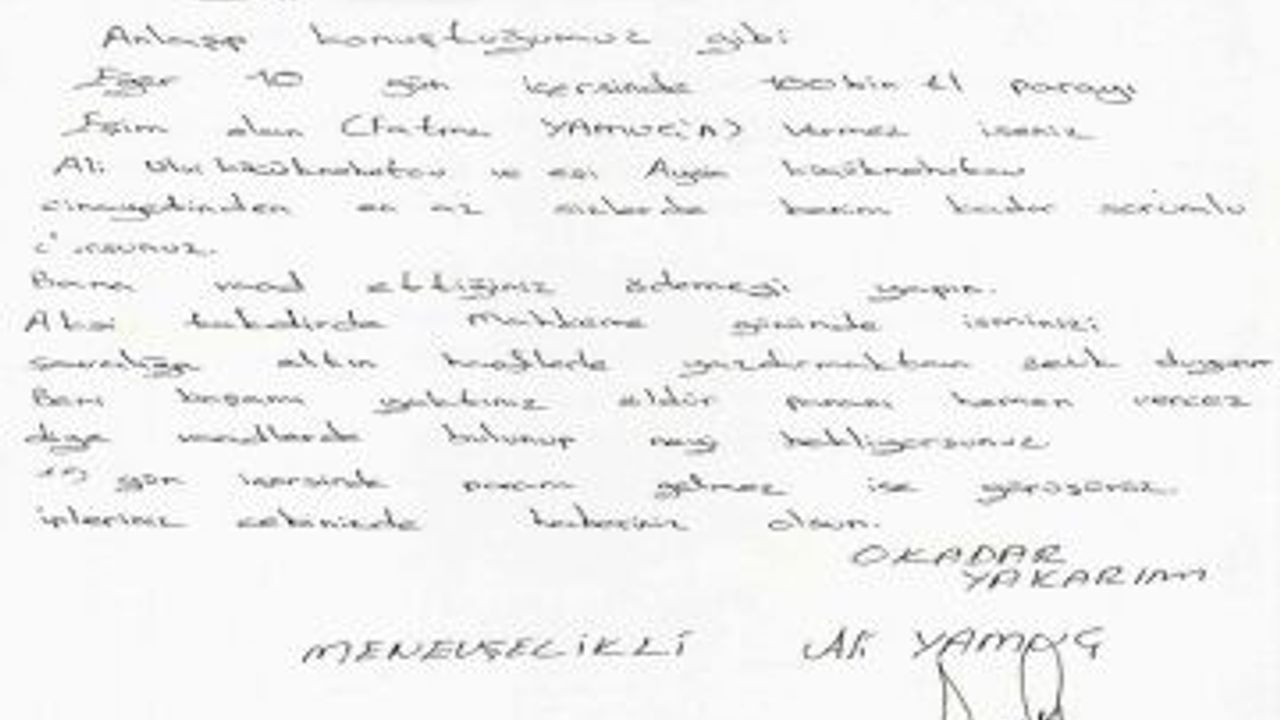 Anlaşıp konuştuğumuz gibi
Eğer 10 gün içersinde 100 bin tl parayı
Eşim olan (Fatma YAMUÇ'A) vermez iseniz
Ali Ulvi Büyüknohutçu ve eşi Aysin Büyüknohutçu
cinayetinden en az sizlerde benim kadar sorumlu
Bana vaad ettiğiniz ödemeyi yapın.
Aksi takdirde Mahkeme gününde isminizi
savcılığa altın harflerle yazdırmaktan zevk duyarım
Beni başımı yaktınız öldür paranı hemen vercez
diye vaadlerde bulunup neyi bekliyorsunuz
gün içersinde param gelmez ise görüşürüz.
ipleriniz cebinizde haberiniz olsun.
OKADAR
YAKARIAM
MENEVŞECİKLİ Ali YAMUÇ